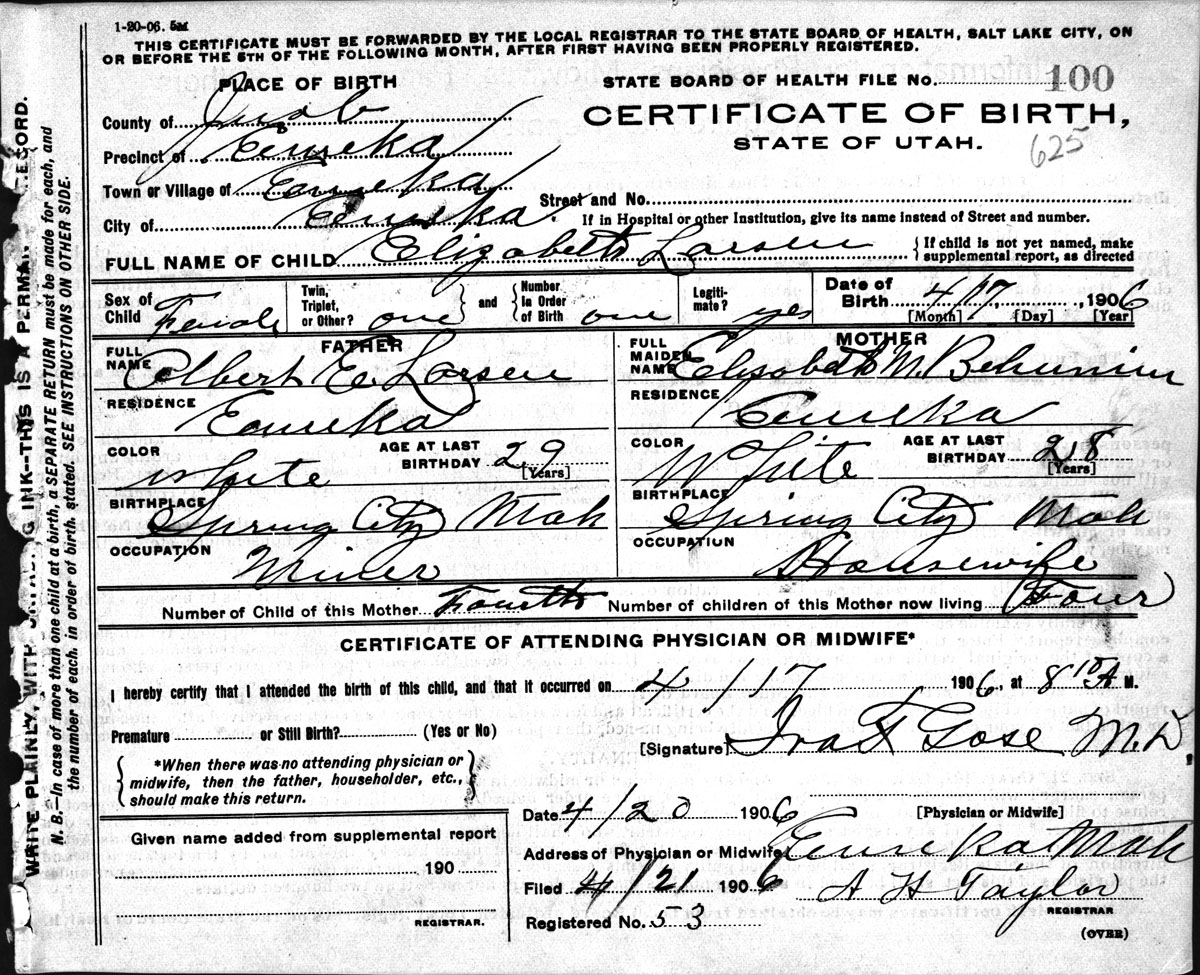 1-20-06. 5M
THIS CERTIFICATE MUST BE FORWARDED BY THE LOCAL REGISTRAR TO THE STATE BOARD OF HEALTH, SALT LAKE CITY, ON
OR BEFORE THE 5TH OF THE FOLLOWING MONTH, AFTER FIRST HAVING BEEN PROPERLY REGISTERED.
PLACE OF BIRTH
STATE BOARD OF HEALTH FILE No. 100
County of Juab
CERTIFICATE OF BIRTH,
STATE OF UTAH.
625
Precinct of Eureka
Town or Village of Eureka
Street and No.
City of Eureka
If in Hospital or other Institution, give its name instead of Street and number.
FULL NAME OF CHILD Elizabeth Larsen
{If child is not yet named, make
supplemental report, as directed
Sex of Child Female
Twin, Triplet, or Other? one
and
Number In Order of Birth one
Legitimate? yes
Date of Birth 4/17, 1906
[Month] [Day] [Year]
FATHER
FULL NAME Albert E Larsen
RESIDENCE Eureka
COLOR White
AGE AT LAST BIRTHDAY 29
[Years]
BIRTHPLACE Spring City Utah
OCCUPATION Miner
MOTHER
FULL MAIDEN NAME Elisabeth M. Behunin
RESIDENCE Eureka
COLOR White
AGE AT LAST BIRTHDAY 28
[Years]
BIRTHPLACE Spring City Utah
OCCUPATION Housewife
Number of Child of this Mother Fourth Number of children of this Mother now living (Four)
CERTIFICATE OF ATTENDING PHYSICIAN OR MIDWIFE*
I hereby certify that I attended the birth of this child, and that it occurred on 4/17 1906, at 8 10 A M.
Premature or Still Birth? (Yes or No)
[Signature] Ira F Gose M.D
{*When there was no attending physician or
midwife, then the father, householder, etc.,
should make this return.}
Date 4/20 1906
[Physician or Midwife]
Given name added from supplemental report
190
REGISTRAR.
Address of Physician or Midwife Eureka Utah
Filed 4/21 1906 A H Taylor
REGISTRAR
Registered No. 53
(OVER)
WRITE PLAINLY, WITH INK—THIS IS A RECORD.
N. B.—In case of more than one child at a birth, a SEPARATE RETURN must be made for each, and
the number of each, in order of birth, stated. SEE INSTRUCTIONS ON OTHER SIDE.